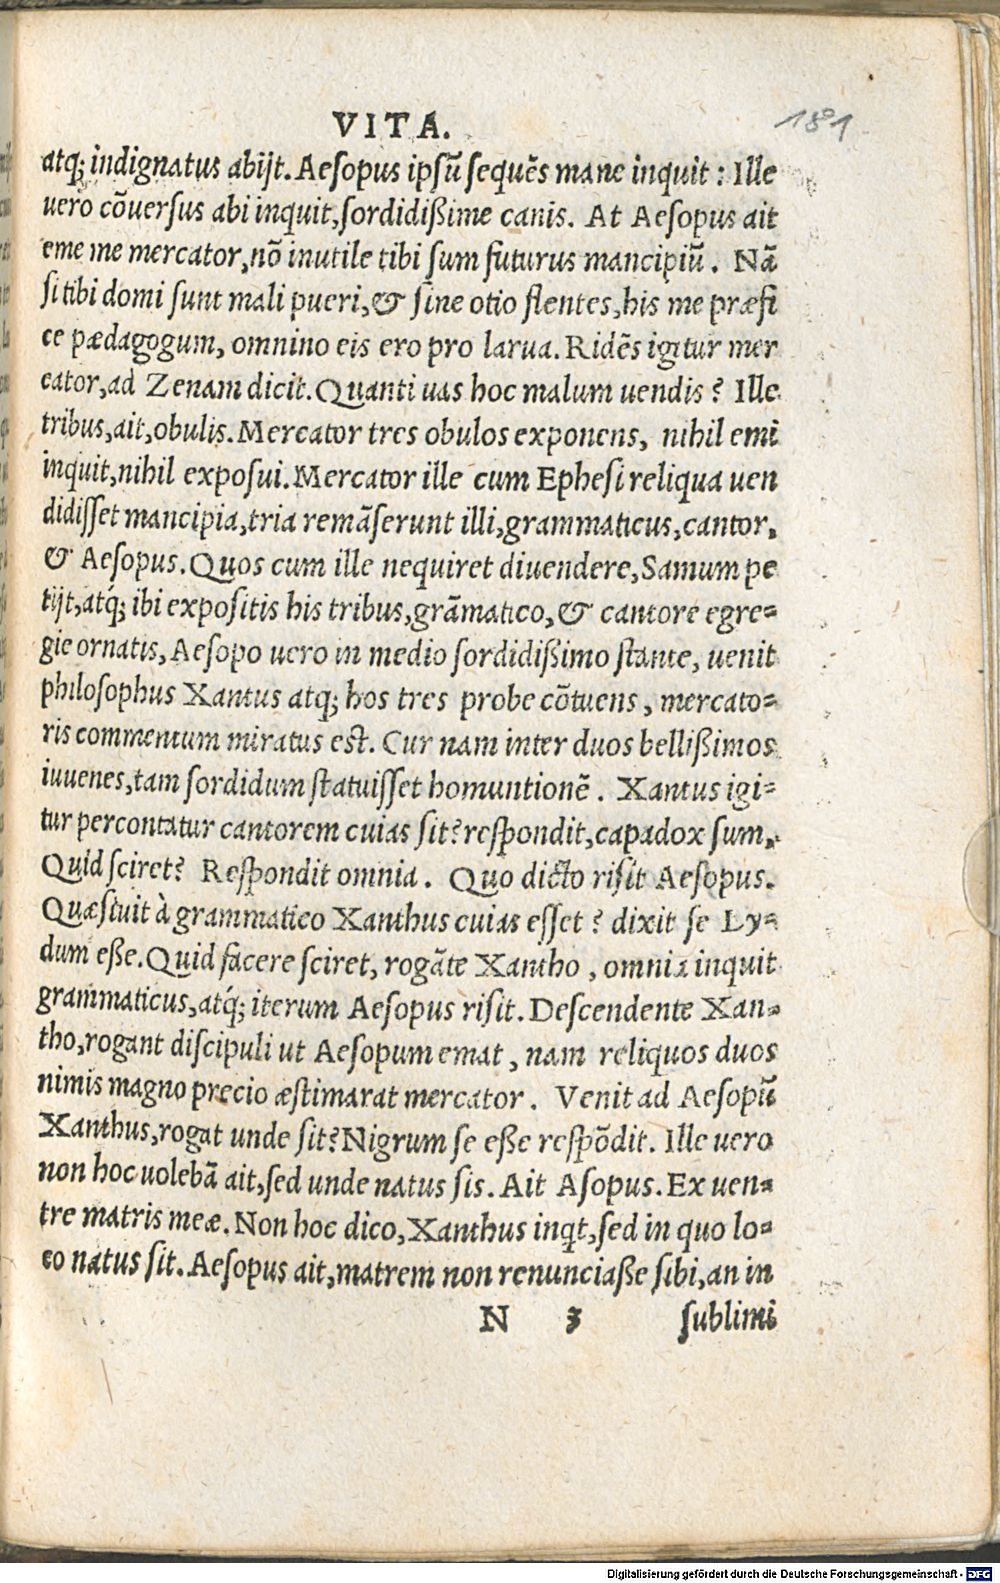 VITA.
181
atq; indignatus abijt. Aesopus ipsũ sequẽs mane inquit: Ille
uero cõuersus abi inquit, sordidißime canis. At Aesopus ait
eme me mercator, nõ inutile tibi sum futurus mancipiũ. Nã
si tibi domi sunt mali pueri, & sine otio flentes, his me præfi
ce pædagogum, omnino eis ero pro larua. Ridẽs igitur mer
cator, ad Zenam dicit. Quanti uas hoc malum uendis? Ille
tribus, ait, obulis. Mercator tres obulos exponens, nihil emi
inquit, nihil exposui. Mercator ille cum Ephesi reliqua uen
didisset mancipia, tria remãserunt illi, grammaticus, cantor,
& Aesopus. Quos cum ille nequiret diuendere, Samum pe
tijt, atq; ibi expositis his tribus, grãmatico, & cantore egre-
gie ornatis, Aesopo uero in medio sordidißimo stante, uenit
philosophus Xantus atq; hos tres probe cõtuens, mercato-
ris commentum miratus est. Cur nam inter duos bellißimos
iuuenes, tam sordidum statuisset homuntionẽ. Xantus igi-
tur percontatur cantorem cuias sit? respondit, capadox sum.
Quid sciret? Respondit omnia. Quo dicto risit Aesopus.
Quæsiuit à grammatico Xanthus cuias esset? dixit se Ly-
dum eße. Quid facere sciret, rogãte Xantho, omnia inquit
grammaticus, atq́; iterum Aesopus risit. Descendente Xan-
tho, rogant discipuli ut Aesopum emat, nam reliquos duos
nimis magno precio æstimarat mercator. Venit ad Aesopũ
Xanthus, rogat unde sit? Nigrum se eße respõdit. Ille uero
non hoc uolebã ait, sed unde natus sis. Ait Asopus. Ex uen-
tre matris meæ. Non hoc dico, Xanthus inqt, sed in quo lo-
co natus sit. Aesopus ait, matrem non renunciaße sibi, an in
N 3 sublimi
Digitalisierung gefördert durch die Deutsche Forschungsgemeinschaft - DFG